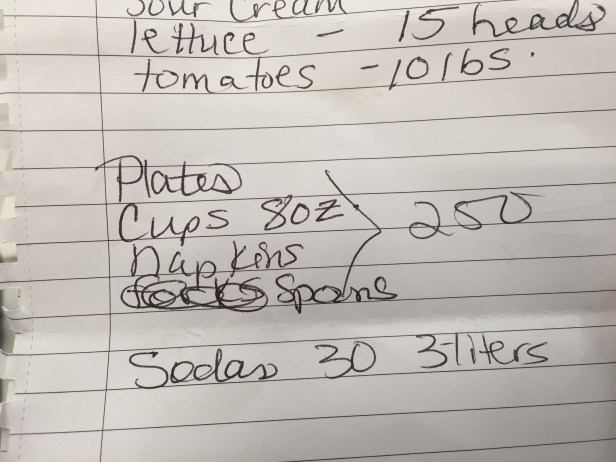 Sour Cream
lettuce - 15 heads
tomatoes - 10 lbs.
Plates
Cups 8oz } 250
Napkins
forks Spons
Sodas 30 3-liters